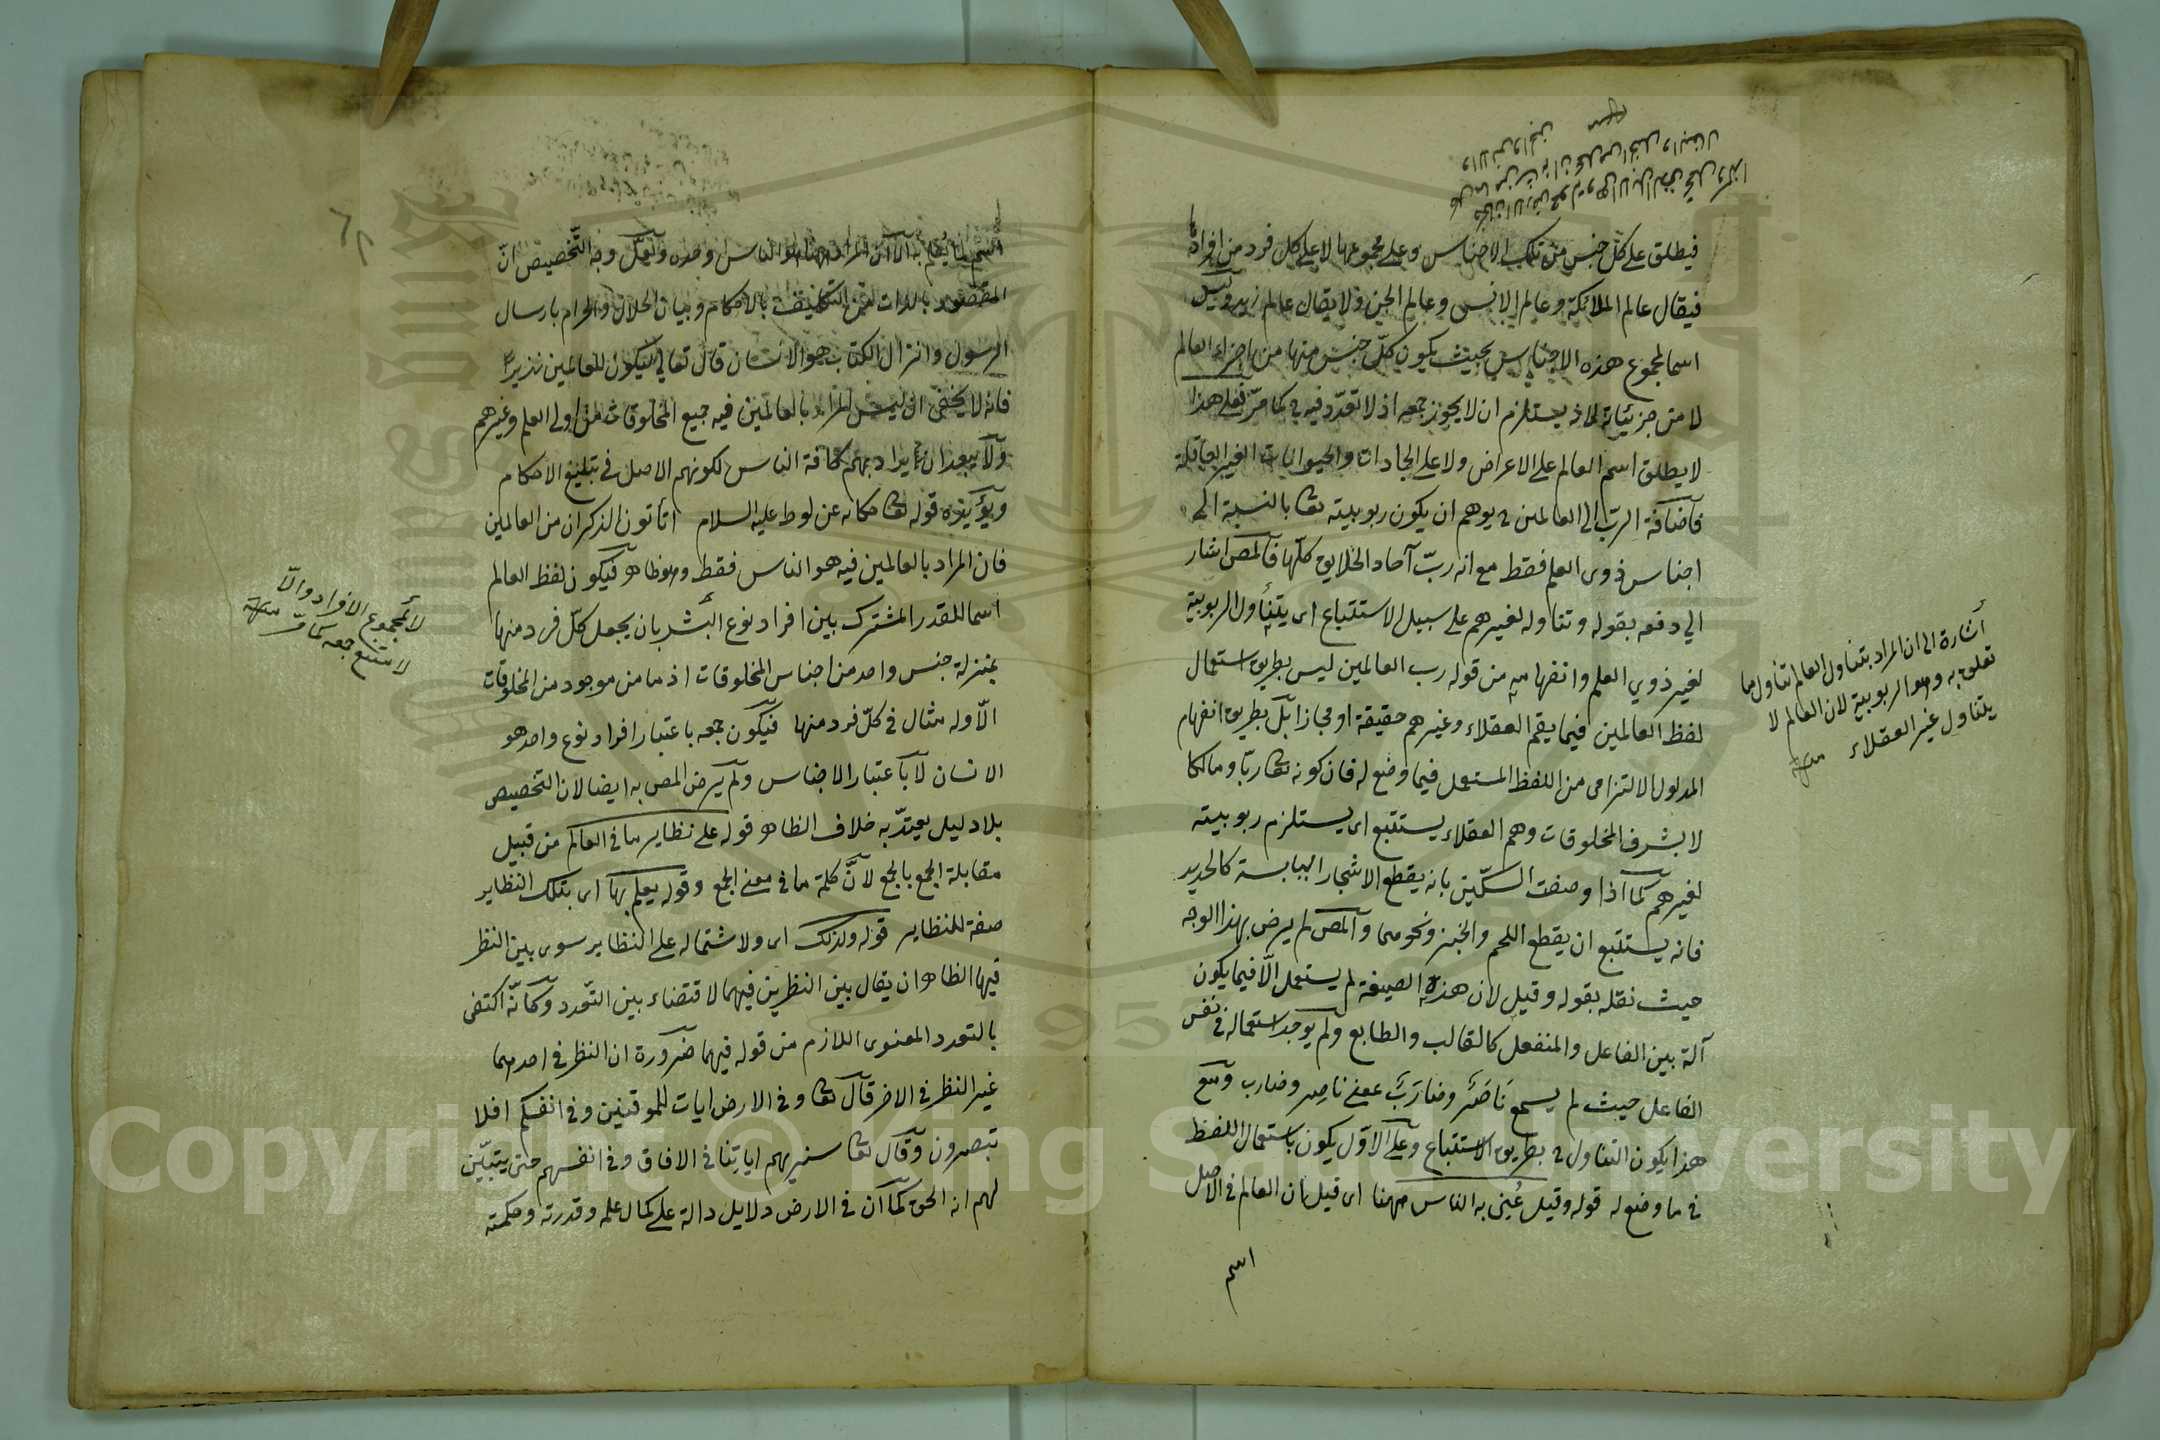 فيطلق على كل جنس من تلك الاجناس وعلى مجموعها لا على كل فرد من افراده
فيقال عالم الملائكة وعالم الانس وعالم الجن ولا يقال عالم زيد وليس
اسما لمجموع هذه الاجناس بحيث يكون كلّ جنس منها من اجزاء العالم
لا من جزئياته لانه يستلزم ان لا يجوز جمعه اذ لا تعدّد فيه ح كما مرّ فعلى هذا
لا يطلق اسم العالم على الاعراض ولا على الجمادات والحيوانات الغير العاقلة
فاضافة الربّ الى العالمين ح يوهم ان يكون ربوبيته تعا بالنسبة الى
اجناس ذوى العلم فقط مع انه ربّ آحاد الخلايق كلّها فالمص اشار
الي دفعه بقوله وتناوله لغيرهم على سبيل الاستتباع اى يتناول الربوبية
لغير ذوي العلم وانفهامه من قوله رب العالمين ليس بطريق استعمال
لفظ العالمين فيما يعم العقلاء وغيرهم حقيقة او مجازا بل بطريق انفهام
المدلول الالتزامى من اللفظ المستعمل فيما وضع له فان كونه تعا ربّا ومالكا
لا بشرف المخلوقات وهم العقلاء يستتبع اى يستلزم ربوبيته
لغيرهم كما اذا وصفت السكّين بانه يقطع الاشجار اليابسة كالحديد
فانه يستتبع ان يقطع اللحم والخبز ونحوهما والمص لم يرض بهذا الوجه
حيث نقله بقوله وقيل لان هذه الصيغة لم يستعمل الّا فيما يكون
آلة بين الفاعل والمنفعل كالقالب والطابع ولم يوجد استعماله في نفس
الفاعل حيث لم يسمع نَاصَر وضارَب بمعنى ناصِر وضارب ومع
هذا يكون التناول ح بطريق الاستتباع وعلى الاوّل يكون باستعمال اللفظ
في ما وضع له قوله وقيل عُنِى به الناس ههنا اى قيل ان العالم في الاصل
اسم
أشارة الى ان المراد بتناول العالم تناول ما
تعلق به وهو الربوبية لان العالم لا
يتناول غير العقلاء منه
اسم لما يعلم به الا ان المراد ههنا هو الناس وحده ولعل وجه التّخصيص انّ
المقصود بالذات من التكليف بالاحكام وبيان الحلال والحرام بارسال
الرسول وانزال الكتاب هو الانسان قال تعالي ليكون للعالمين نذيرا
فانه لا يخفى ان ليس المراد بالعالمين فيه جميع المخلوقات من اولى العلم وغيرهم
ولا يبعد ان يراد بهم كافة الناس لكونهم الاصل في تبليغ الاحكام
ويؤيّده قوله تعا حكاية عن لوط عليه السلام أتأتون الذكران من العالمين
فان المراد بالعالمين فيه هو الناس فقط وهو ظاهر فيكون لفظ العالم
اسما للقدر المشترك بين افراد نوع البشر بان يجعل كلّ فرد منها
بمنزلة جنس واحد من اجناس المخلوقات اذ ما من موجود من المخلوقات
الّا وله مثال في كلّ فرد منها فيكون جمعه باعتبار افراد نوع واحد هو
الانسان لا باعتبار الاجناس ولم يرض المص به ايضا لان التخصيص
بلا دليل يعتدّ به خلاف الظاهر قوله على نظاير ما في العالم من قبيل
مقابلة الجمع بالجمع لانّ كلمة ما في معنى الجمع وقوله يعلم بها اى بتلك النظاير
صفة للنظاير قوله ولذلك اى ولاشتماله على النظاير سوى بين النظر
فيها الظاهر ان يقال بين النظرين فيهما لاقتضاء بين التعدد وكانّه اكتفى
بالتعدد المعنوى اللازم من قوله فيهما ضرورة ان النظر في احدهما
غير النظر في الاخر قال تعا وفي الارض ايات للموقنين وفي انفسكم افلا
تبصرون وقال تعا سنريهم اياتنا في الافاق وفي انفسهم حتى يتبيّن
لهم انه الحق كما ان في الارض دلايل دالة على كمال علمه وقدرته وحكمته
لا لمجموع الافراد والّا
لامتنع جمعه كما مرّ منه
Copyright © King Saud University